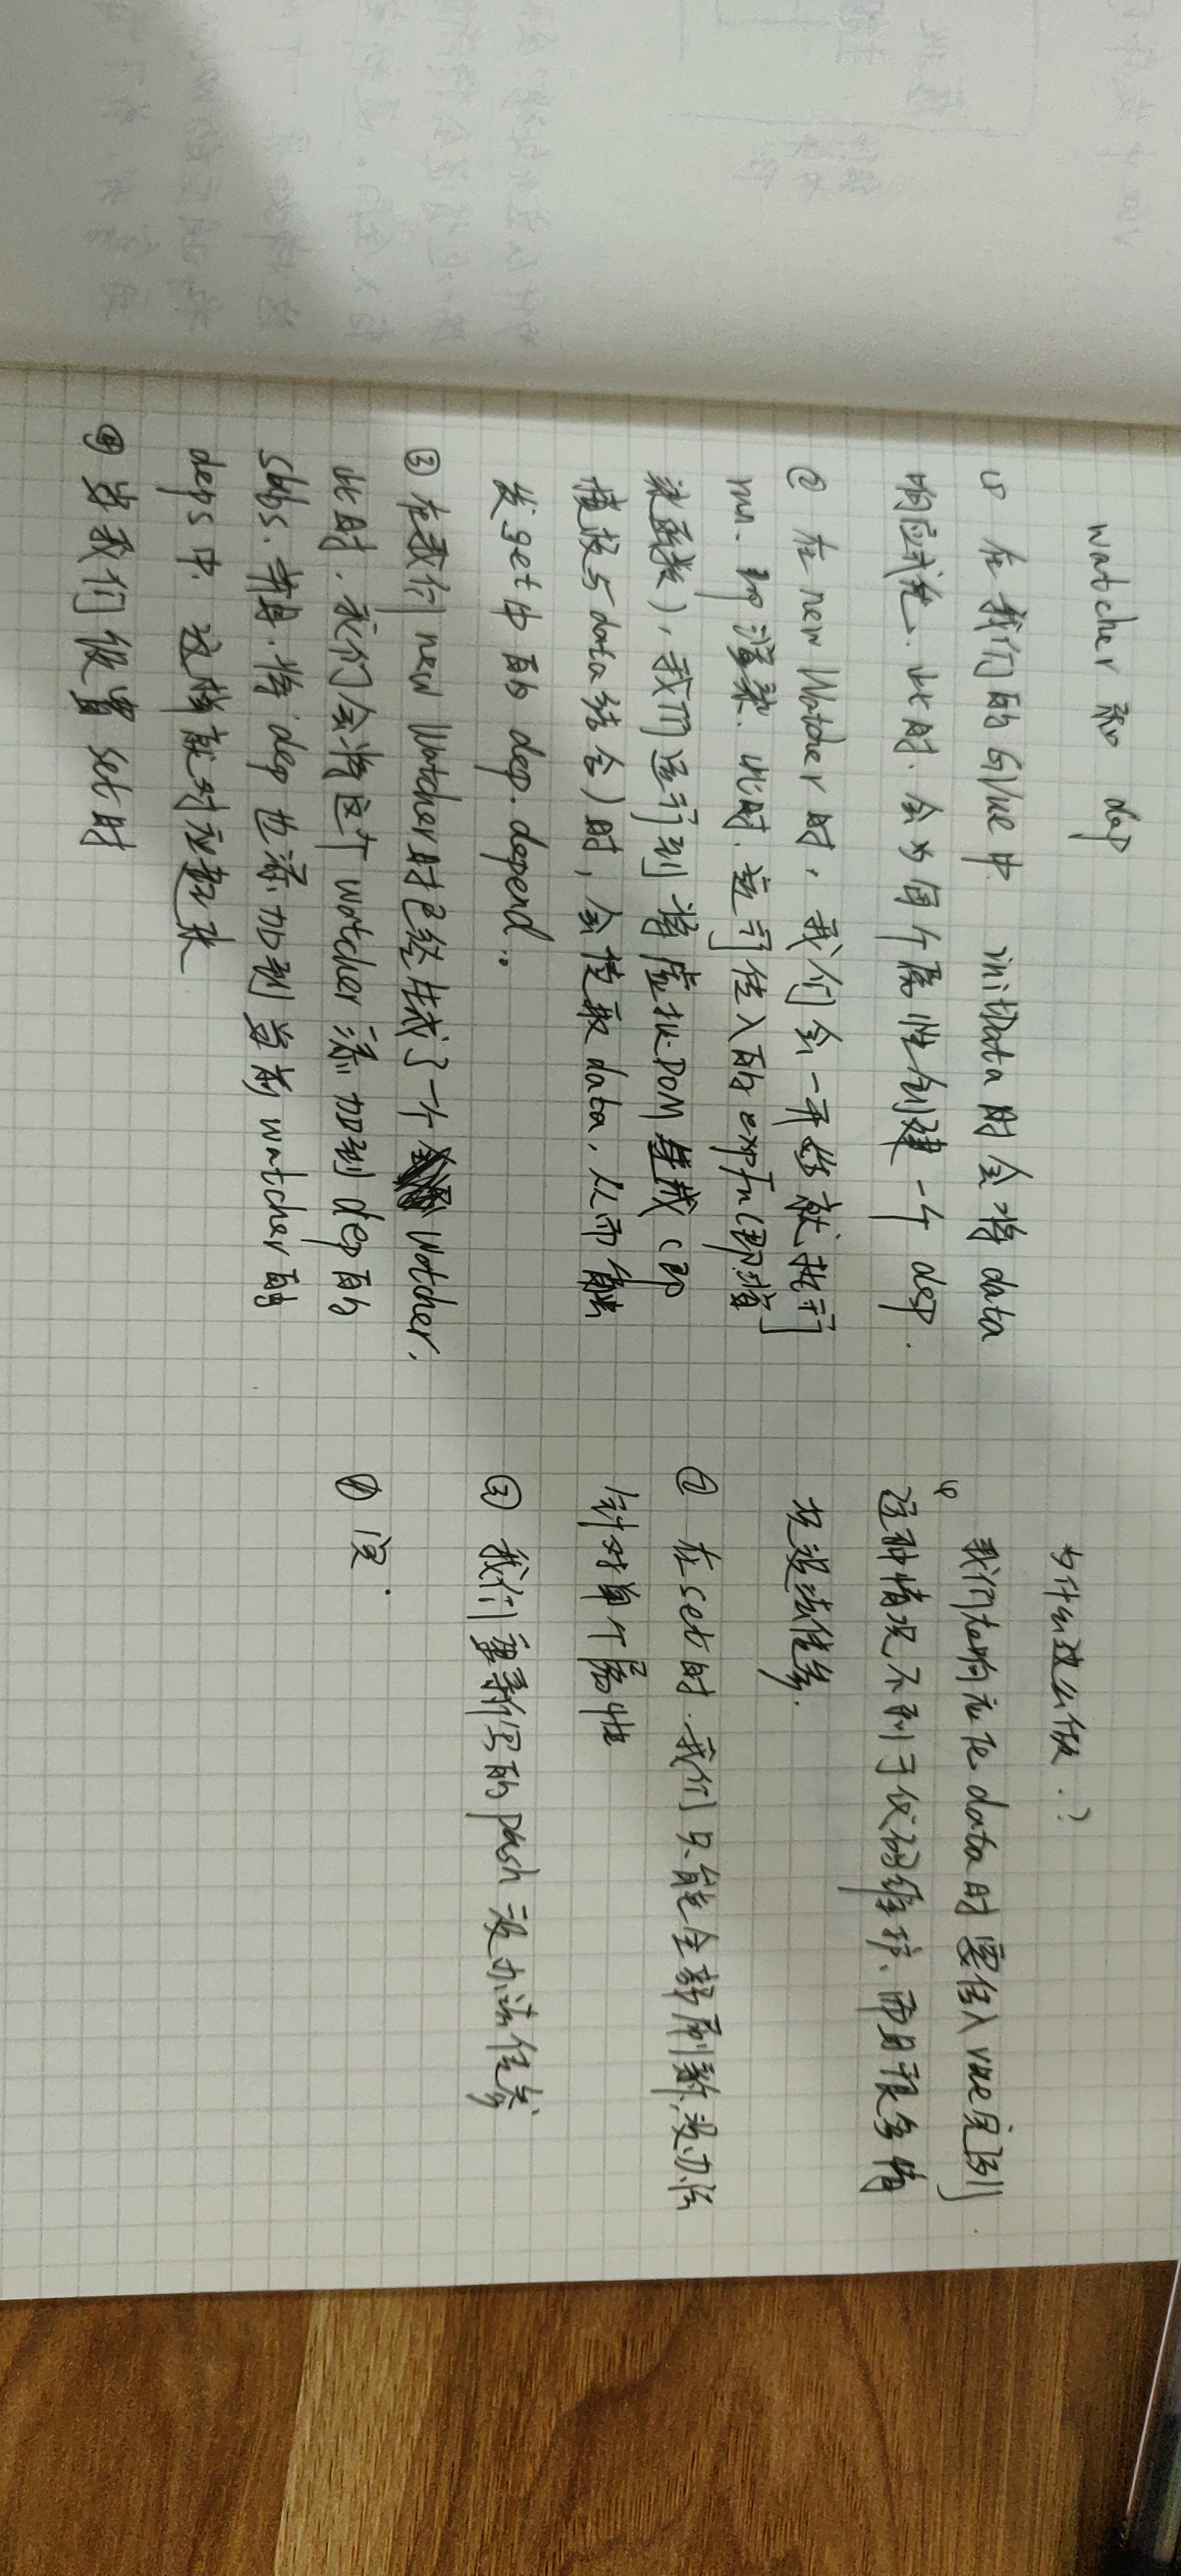 watcher 和 dep
① 在我们的GVue中 initData时会将data
响应式化. 此时. 会为每个属性创建一个 dep.
② 在 new Watcher 时, 我们会一开始就执行
run. 即渲染. 此时. 运行传入的 expFn (即渲
染函数), 我们运行到 将虚拟DOM 生成 (即
模板与data结合)时, 会读取data, 从而触
发get中的 dep.depend..
③ 在我们 new Watcher时已经生成了一个 Watcher.
此时. 我们会将这个 watcher 添加到 dep的
sbbs. 并且. 将 dep 也添加到 当前 watcher的
deps 中. 这样就对应起来
④ 当我们设置 set 时
为什么这么做.?
我们在响应化 data时 要传入 vue实例
这种情况不利于代码维护. 而且很多情
况没法传参.
② 在set时. 我们只能全部刷新, 没办法
针对单个属性
③ 我们重新写的 push 没办法传参
① 没.